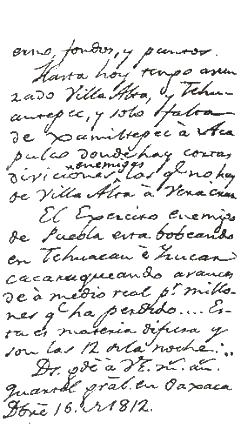 erno, fondos, y puntos.
Hasta hoy tengo avan
zado Villa Alta, y Tehu
antepec, y solo falta
de Xamiltepec á Aca
pulco donde hay cortas
diviciones enemigas, los q.e no hay
de Villa Alta á Veracruz
El Exercito enemigo
de Puebla esta bobeando
en Tehuacan é Yzucar
cacaraqueando avances
de á medio real p.r millo
nes q.e ha perdido.... Es-
ta es materia difusa y
son las 12 de la noche...
Ds. gde á VE. m.s a.s
Quartel gral. en Oaxaca
Dbre 16. 1812.